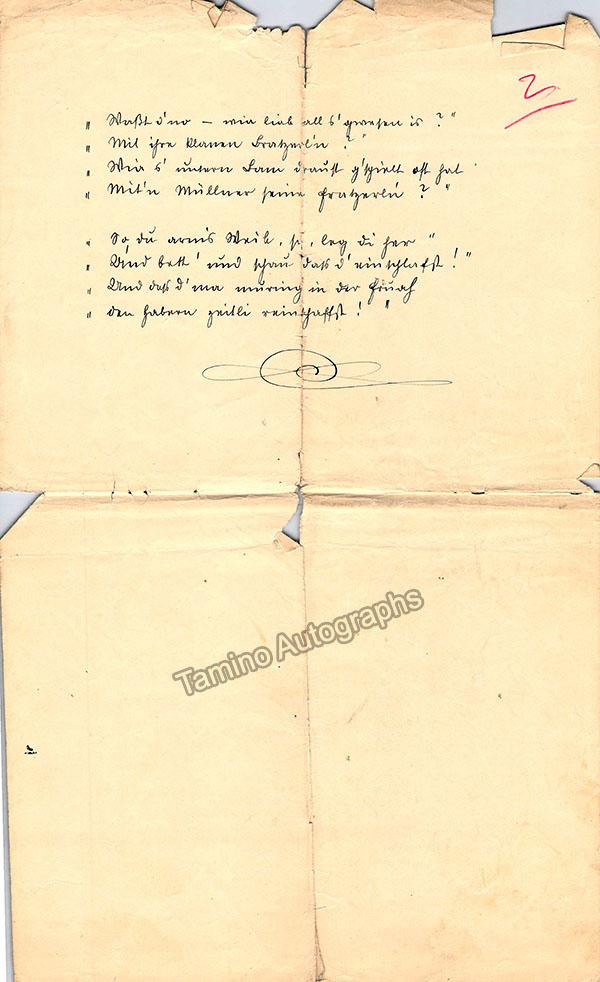 2
„ Waßt d'no – wia liab all s'gwesen is ? "
„ Mit ihre klanen Bratzerln ? "
„ Wia s' untern Bam draust g'spielt oft hat
„ Mit'n Müllner seine Fratzerln ? "
„ So, du arms Weib, so, leg di her "
„ Und bett' und schau dass d'einschlafst ! "
„ Und dass d'ma muring in der Fruah
„ den Habern zeitli reinschaffst ! "
Tamino Autographs